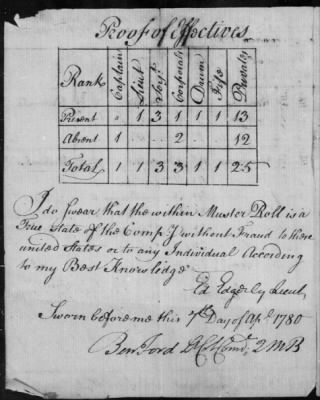 Proof of Effectives
Rank Captain Lieut Serjt Corporals Drum Fife Privates
Present " 1 3 1 1 1 13
Absent 1 2 12
Total 1 1 3 3 1 1 25
I do Swear that the within Muster Roll is a
True State of the Compy without Fraud to these
united States or to any Individual According
to my Best Knowledge
Ed Edgerly Lieut
Sworn before me this 7th Day of Apl 1780
Ben Ford Lt Col Comd 2 M B